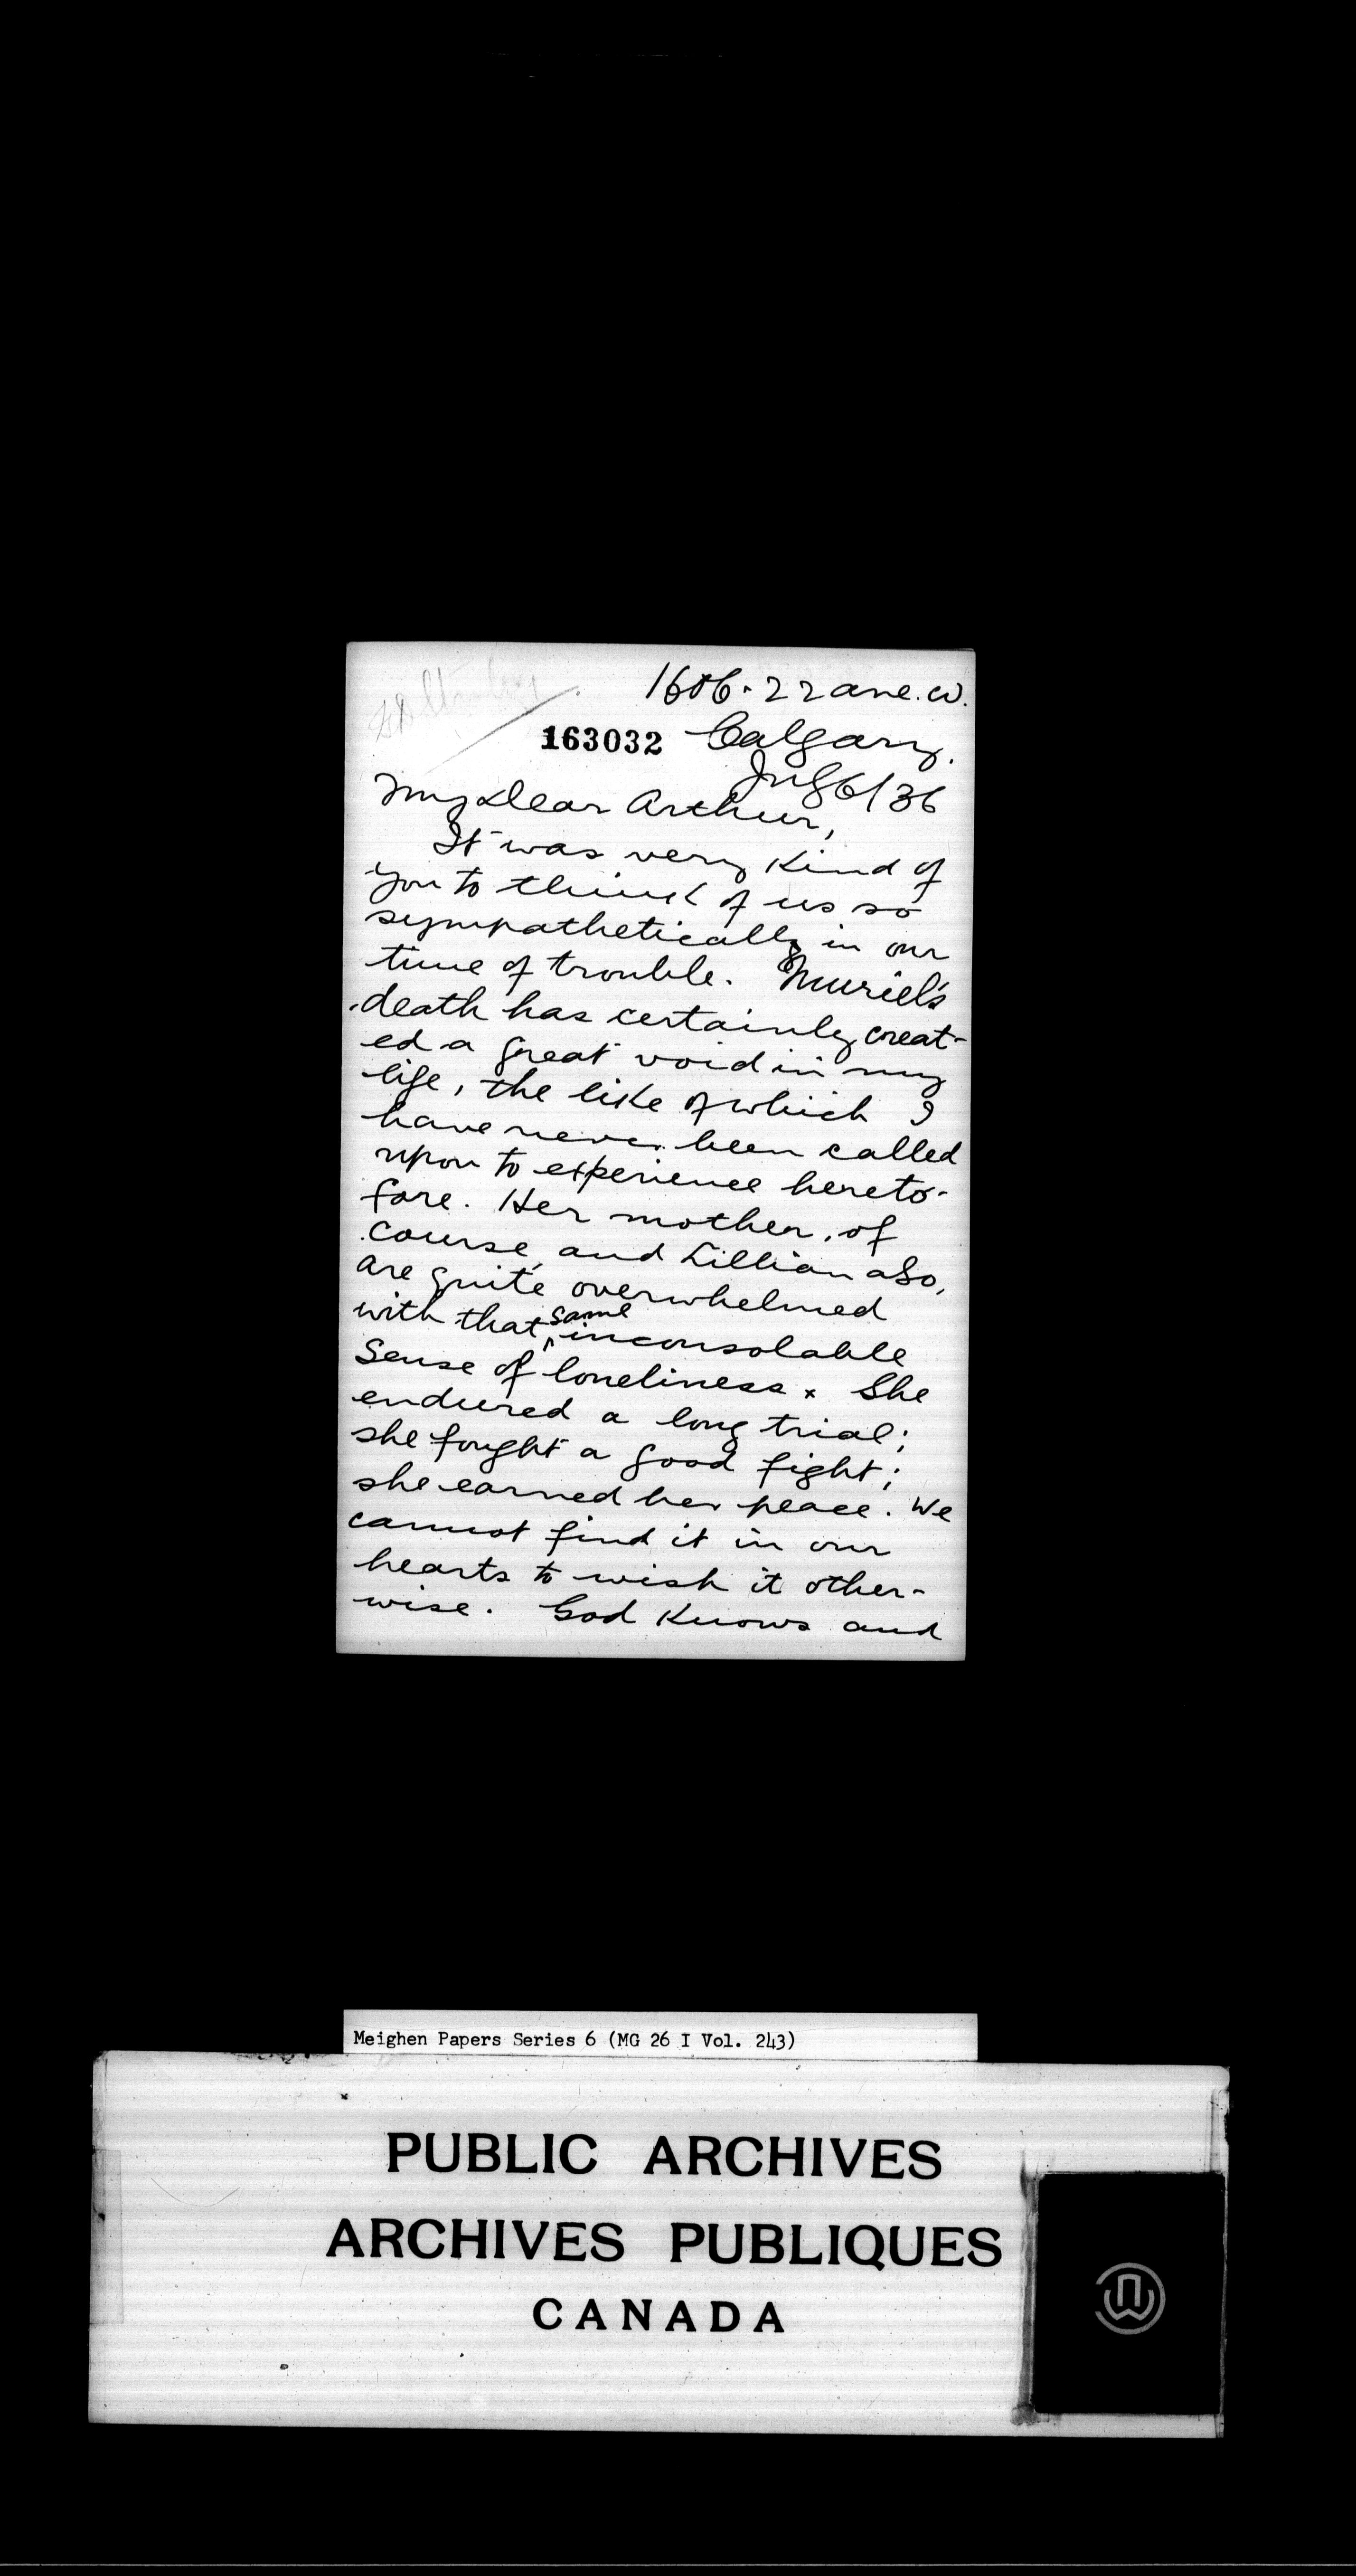 1606 - 22 ave. W.
163032 Calgary.
Jul 6/36
My Dear Arthur,
It was very kind of
you to think of us so
sympathetically in our
time of trouble. Muriel's
death has certainly creat-
ed a great void in my
life, the like of which I
have never been called
upon to experience hereto-
fore. Her mother, of
course, and Lillian also,
are quite overwhelmed
with that same inconsolable
sense of loneliness. She
endured a long trial;
she fought a good fight;
she earned her peace. We
cannot find it in our
hearts to wish it other-
wise. God knows and
Meighen Papers Series 6 (MG 26 I Vol. 243)
PUBLIC ARCHIVES
ARCHIVES PUBLIQUES
CANADA